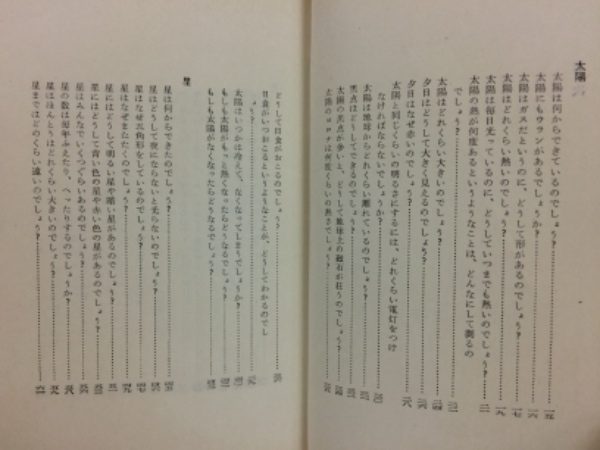 太陽
太陽は何からできているのでしょう?……一五
太陽にもウランがあるでしょうか?……一六
太陽はガスだというのに、どうして形があるのでしょう?……一七
太陽はどれくらい熱いのでしょう?……一九
太陽は毎日光っているのに、どうしていつまでも熱いのでしょう?
太陽の熱が何度あるというようなことは、どんなにして測るの
でしょう?
太陽はどれくらい大きいのでしょう?
夕日はどうして大きく見えるのでしょう?
夕日はなぜ赤いのでしょう?
太陽と同じくらいの明るさにするには、どれくらい電灯をつけ
なければならないでしょうか?
太陽は地球からどれくらい離れているのでしょう?
黒点はどうしてできるのでしょう?
太陽の黒点が多いと、どうして地球上の磁石が狂うのでしょう?
太陽のコロナは何度くらいの熱さでしょう?
どうして日食がおこるのでしょう?
日食がいつおこるというようなことが、どうしてわかるのでし
ょう?
太陽はいつか冷えて、なくなってしまうでしょうか?
もしも太陽がもっと熱くなったらどうなるでしょう?
もしも太陽がなくなったらどうなるでしょう?
星
星は何からできたのでしょう?
星はどうして夜にならないと光らないのでしょう?
星はなぜ三角形をしているのでしょう?
星はなぜまたたくのでしょう?
星にはどうして明るい星や暗い星があるのでしょう?
星にはどうして青い色の星や赤い色の星があるのでしょう?
星はみんなでいくつぐらいあるのでしょう?
星の数は毎年ふえたり、へったりするのでしょうか?
星はほんとうはどれくらい大きいのでしょう?
星まではどのくらい遠いのでしょう?